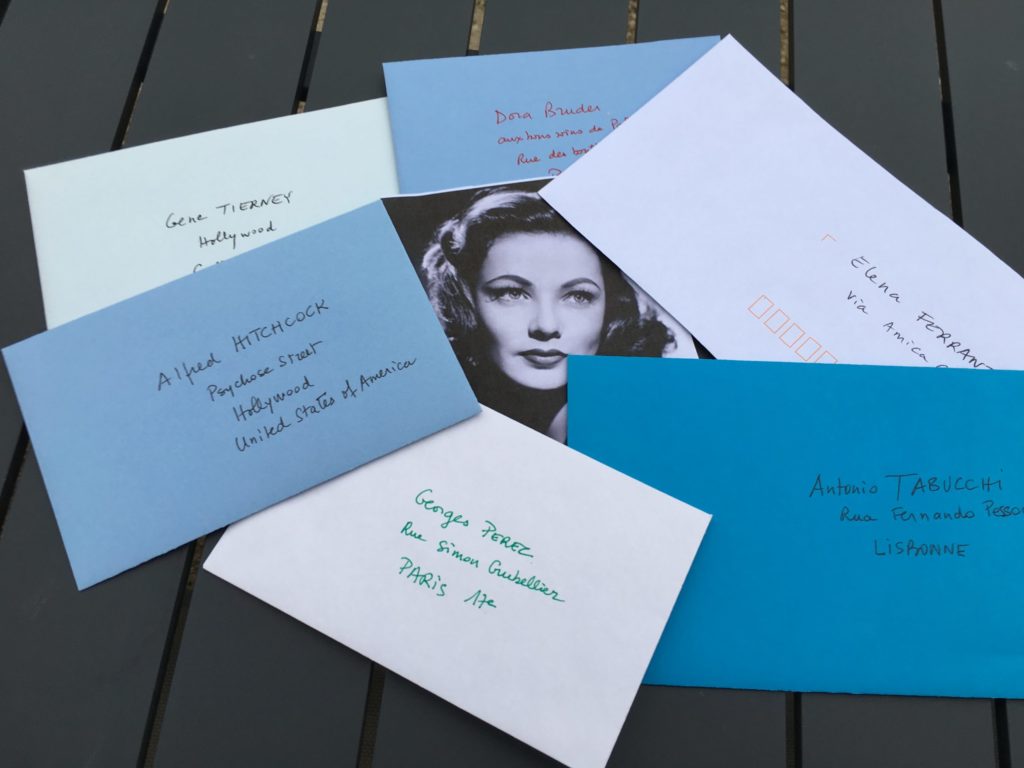 Dora Bruder
aux bons soins de
Rue des
Gene TIERNEY
Hollywood
Elena FERRANT
Via Amica
Alfred HITCHCOCK
Psychose Street
Hollywood
United States of America
Antonio TABUCCHI
Rua Fernando Pesso
LISBONNE
Georges PEREC
Rue Simon Crubellier
PARIS 17e